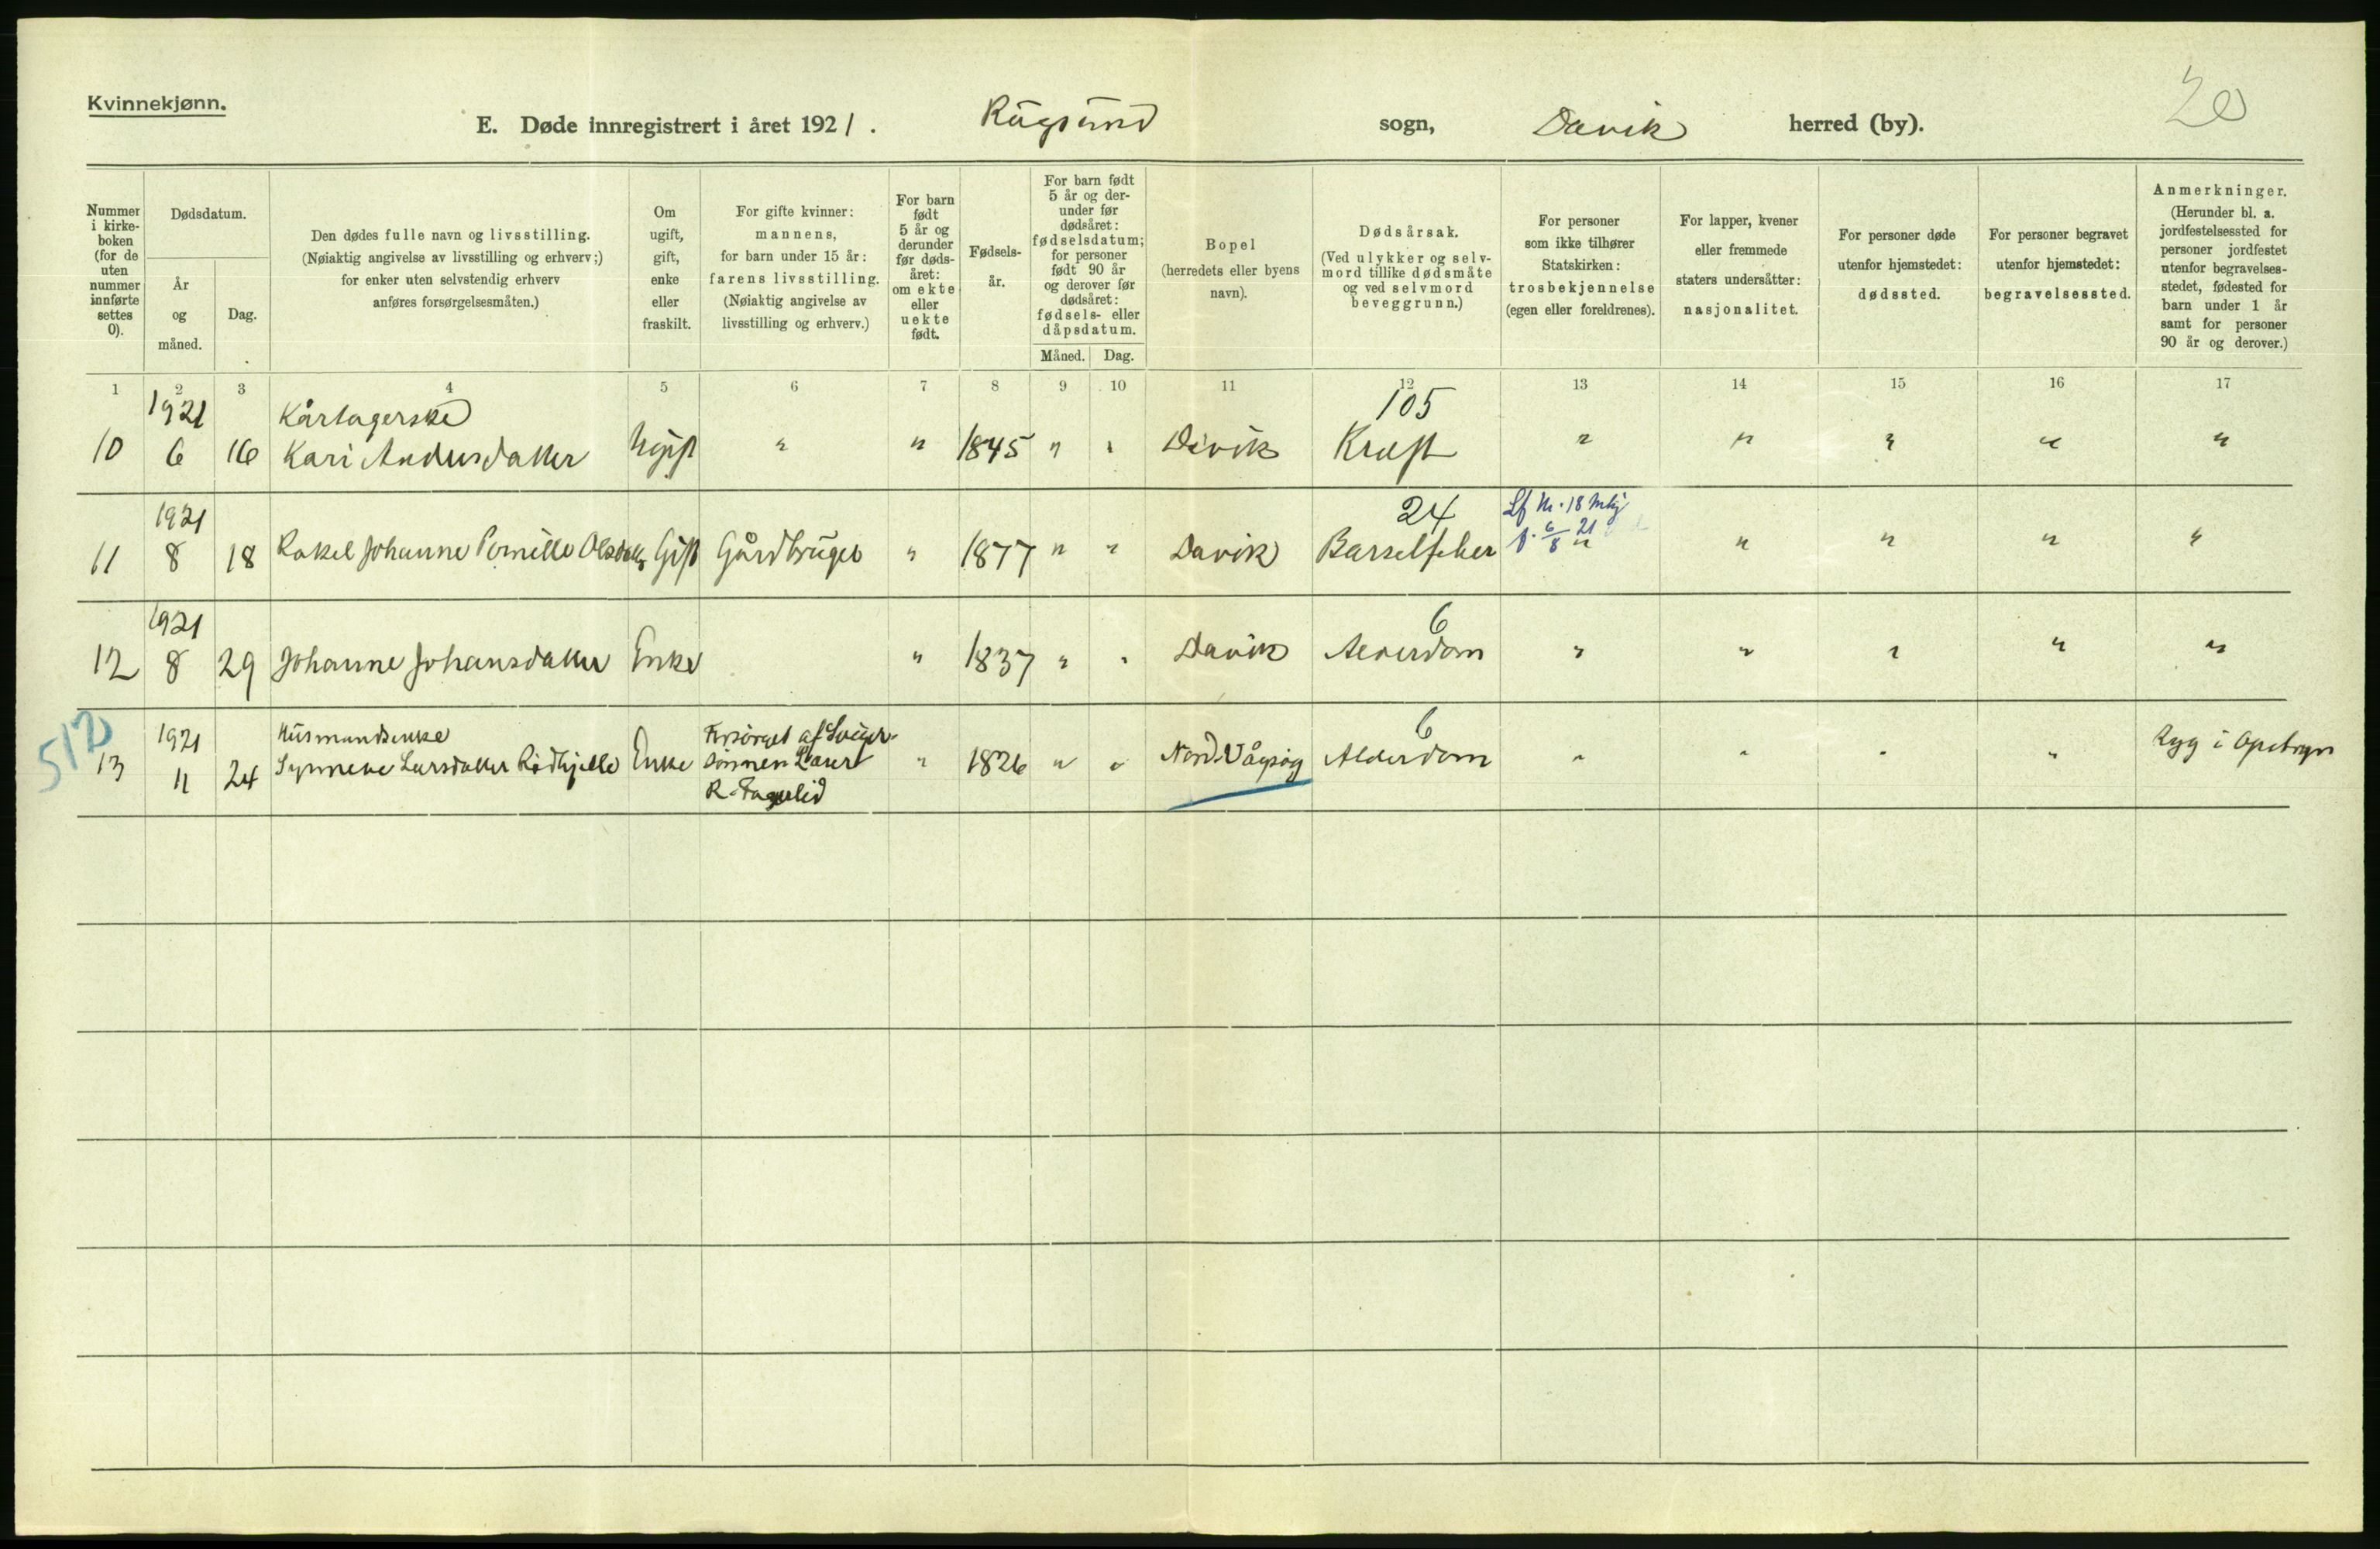 Kvinnekjønn.
20
E. Døde innregistrert i året 1921. Rugsund sogn, Davik herred (by).
Nummer i kirkeboken (for de uten nummer innførte settes 0).
Dødsdatum.
År og måned.
Dag.
Den dødes fulle navn og livsstilling. (Nøiaktig angivelse av livsstilling og erhverv;) for enker uten selvstendig erhverv anføres forsørgelsesmåten.)
Om ugift, gift, enke eller fraskilt.
For gifte kvinner: mannens, for barn under 15 år: farens livsstilling. (Nøiaktig angivelse av livsstilling og erhverv.)
For barn født 5 år og derunder før dødsåret: om ekte eller uekte født.
Fødselsår.
For barn født 5 år og derunder før dødsåret: fødselsdatum; for personer født 90 år og derover før dødsåret: fødsels- eller dåpsdatum.
Måned. Dag.
Bopel (herredets eller byens navn).
Dødsårsak. (Ved ulykker og selvmord tillike dødsmåte og ved selvmord beveggrunn.)
For personer som ikke tilhører Statskirken: trosbekjennelse (egen eller foreldrenes).
For lapper, kvener eller fremmede staters undersåtter: nasjonalitet.
For personer døde utenfor hjemstedet: dødssted.
For personer begravet utenfor hjemstedet: begravelsessted.
Anmerkninger. (Herunder bl. a. jordfestelsessted for personer jordfestet utenfor begravelsesstedet, fødested for barn under 1 år samt for personer 90 år og derover.)
1 2 3 4 5 6 7 8 9 10 11 12 13 14 15 16 17
1921 Kårtagerske 105
10 6 16 Kari Andersdatter Ugift " " 1845 " " Davik Kræft " " " " "
1921 24 Lf Nr. 18 Mkj
f. 6/8 21
11 8 18 Rakel Johanne Pernille Olsdatter Gift Gårdbruger " 1877 " " Davik Barselfeber " " " " "
1921 6
12 8 29 Johanne Johansdatter Enke " 1837 " " Davik Alderdom " " " " "
512
1921 Husmandsenke Forsørget af Sviger- 6
13 11 24 Synneve Larsdatter Rødhjelle Enke sønnen Lars " 1826 " " Nord-Vågsøy Alderdom " " " " Ryg i
R. Fagerlid